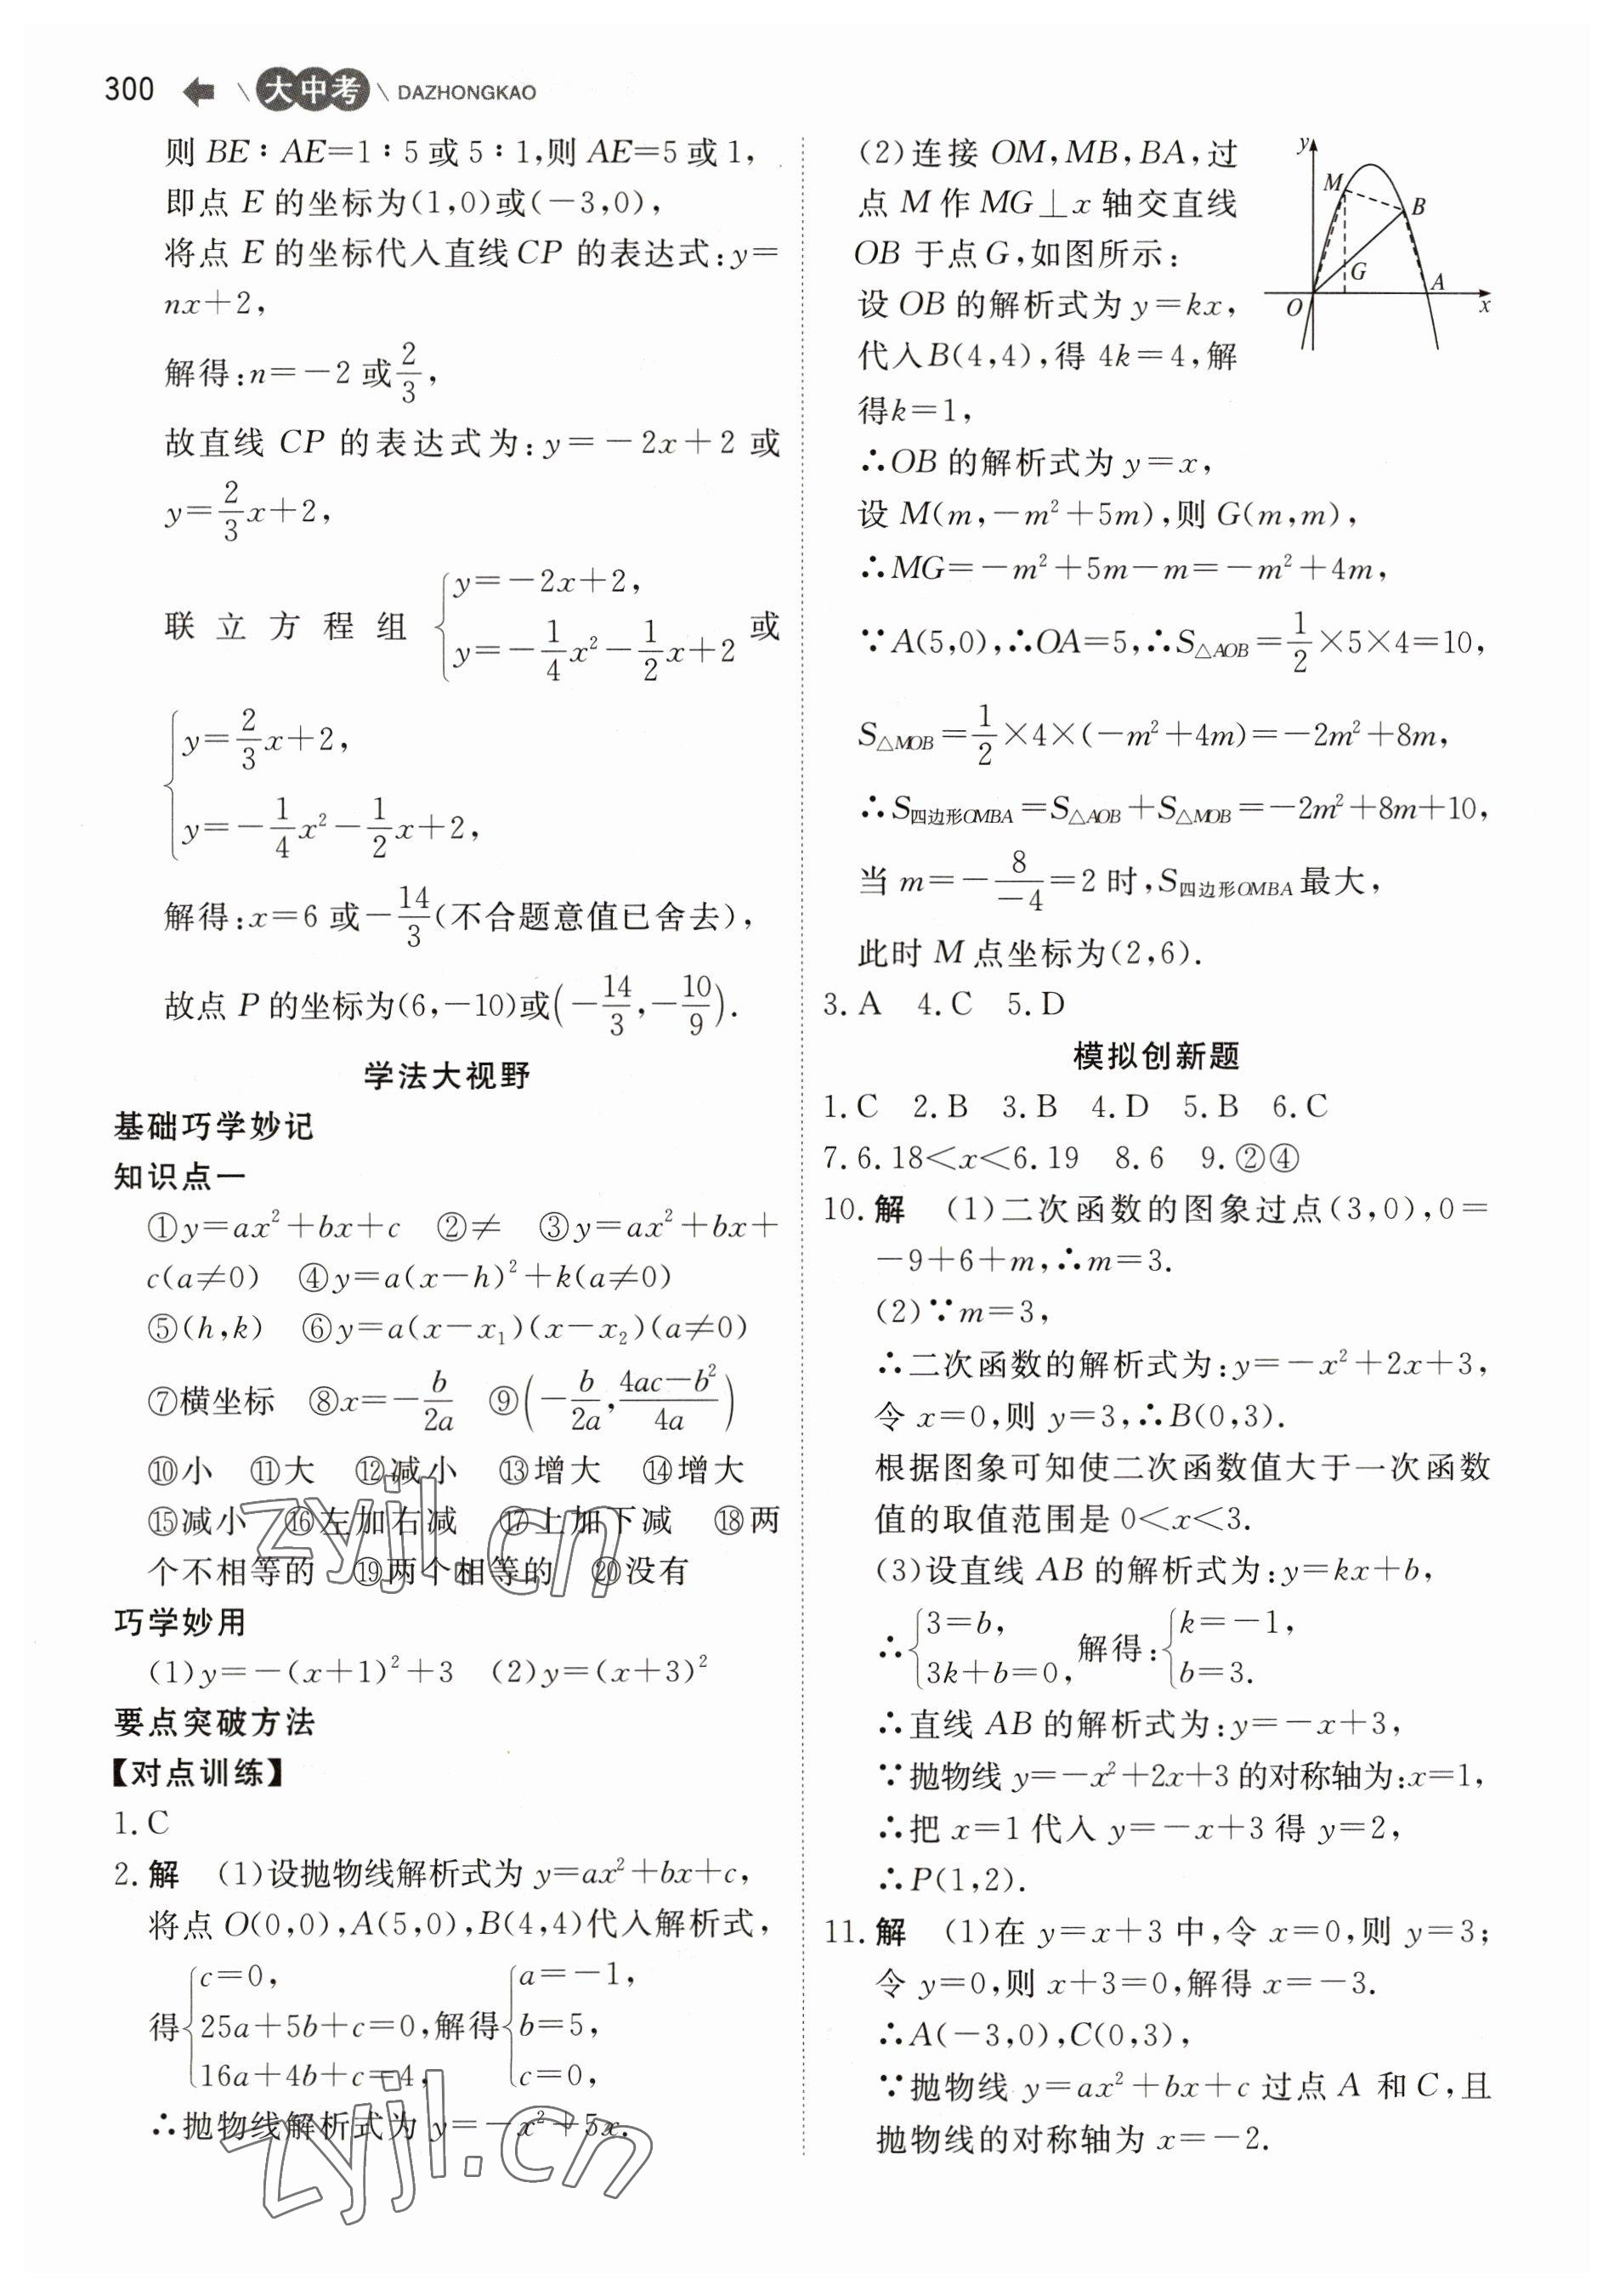 300 大中考 DAZHONGKAO
则 BE∶AE=1∶5 或 5∶1,则 AE=5 或 1,
即点 E 的坐标为(1,0)或(-3,0),
将点 E 的坐标代入直线 CP 的表达式:y=
nx+2,
解得:n=-2 或 2/3,
故直线 CP 的表达式为:y=-2x+2 或
y=2/3 x+2,
联立方程组 { y=-2x+2, y=-1/4 x²-1/2 x+2 或
{ y=2/3 x+2,
y=-1/4 x²-1/2 x+2,
解得:x=6 或 -14/3(不合题意值已舍去),
故点 P 的坐标为(6,-10)或(-14/3,-10/9).
学法大视野
基础巧学妙记
知识点一
①y=ax²+bx+c ②≠ ③y=ax²+bx+
c(a≠0) ④y=a(x-h)²+k(a≠0)
⑤(h,k) ⑥y=a(x-x₁)(x-x₂)(a≠0)
⑦横坐标 ⑧x=-b/2a ⑨(-b/2a,(4ac-b²)/4a)
⑩小 ⑪大 ⑫减小 ⑬增大 ⑭增大
⑮减小 ⑯左加右减 ⑰上加下减 ⑱两
个不相等的 ⑲两个相等的 ⑳没有
巧学妙用
(1)y=-(x+1)²+3 (2)y=(x+3)²
要点突破方法
【对点训练】
1.C
2.解 (1)设抛物线解析式为 y=ax²+bx+c,
将点 O(0,0),A(5,0),B(4,4)代入解析式,
得{ c=0, 25a+5b+c=0, 16a+4b+c=4, 解得{ a=-1, b=5, c=0,
∴抛物线解析式为 y=-x²+5x.
(2)连接 OM,MB,BA,过
点 M 作 MG⊥x 轴交直线
OB 于点 G,如图所示:
设 OB 的解析式为 y=kx,
代入B(4,4),得 4k=4,解
得k=1,
y
M
B
G
A
O
x
∴OB 的解析式为 y=x,
设 M(m,-m²+5m),则 G(m,m),
∴MG=-m²+5m-m=-m²+4m,
∵A(5,0),∴OA=5,∴S△AOB=1/2×5×4=10,
S△MOB=1/2×4×(-m²+4m)=-2m²+8m,
∴S四边形OMBA=S△AOB+S△MOB=-2m²+8m+10,
当 m=-8/-4=2 时,S四边形OMBA最大,
此时 M 点坐标为(2,6).
3.A 4.C 5.D
模拟创新题
1.C 2.B 3.B 4.D 5.B 6.C
7.6.18<x<6.19 8.6 9.②④
10.解 (1)二次函数的图象过点(3,0),0=
-9+6+m,∴m=3.
(2)∵m=3,
∴二次函数的解析式为:y=-x²+2x+3,
令 x=0,则 y=3,∴B(0,3).
根据图象可知使二次函数值大于一次函数
值的取值范围是 0<x<3.
(3)设直线 AB 的解析式为:y=kx+b,
∴{ 3=b, 3k+b=0, 解得:{ k=-1, b=3.
∴直线 AB 的解析式为:y=-x+3,
∵抛物线 y=-x²+2x+3 的对称轴为:x=1,
∴把 x=1 代入 y=-x+3 得 y=2,
∴P(1,2).
11.解 (1)在 y=x+3 中,令 x=0,则 y=3;
令 y=0,则 x+3=0,解得 x=-3.
∴A(-3,0),C(0,3),
∵抛物线 y=ax²+bx+c 过点 A 和 C,且
抛物线的对称轴为 x=-2.
zyjl.cn
zyjl.cn